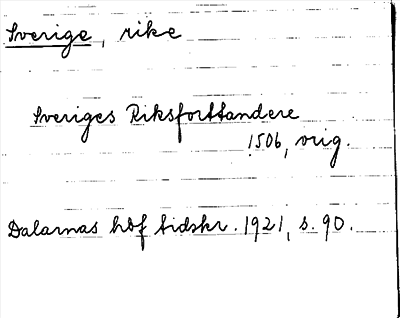 Sverige, rike
Sveriges Riksforttandere
1506, orig.
Dalarnas hbf tidskr. 1921, s. 90.